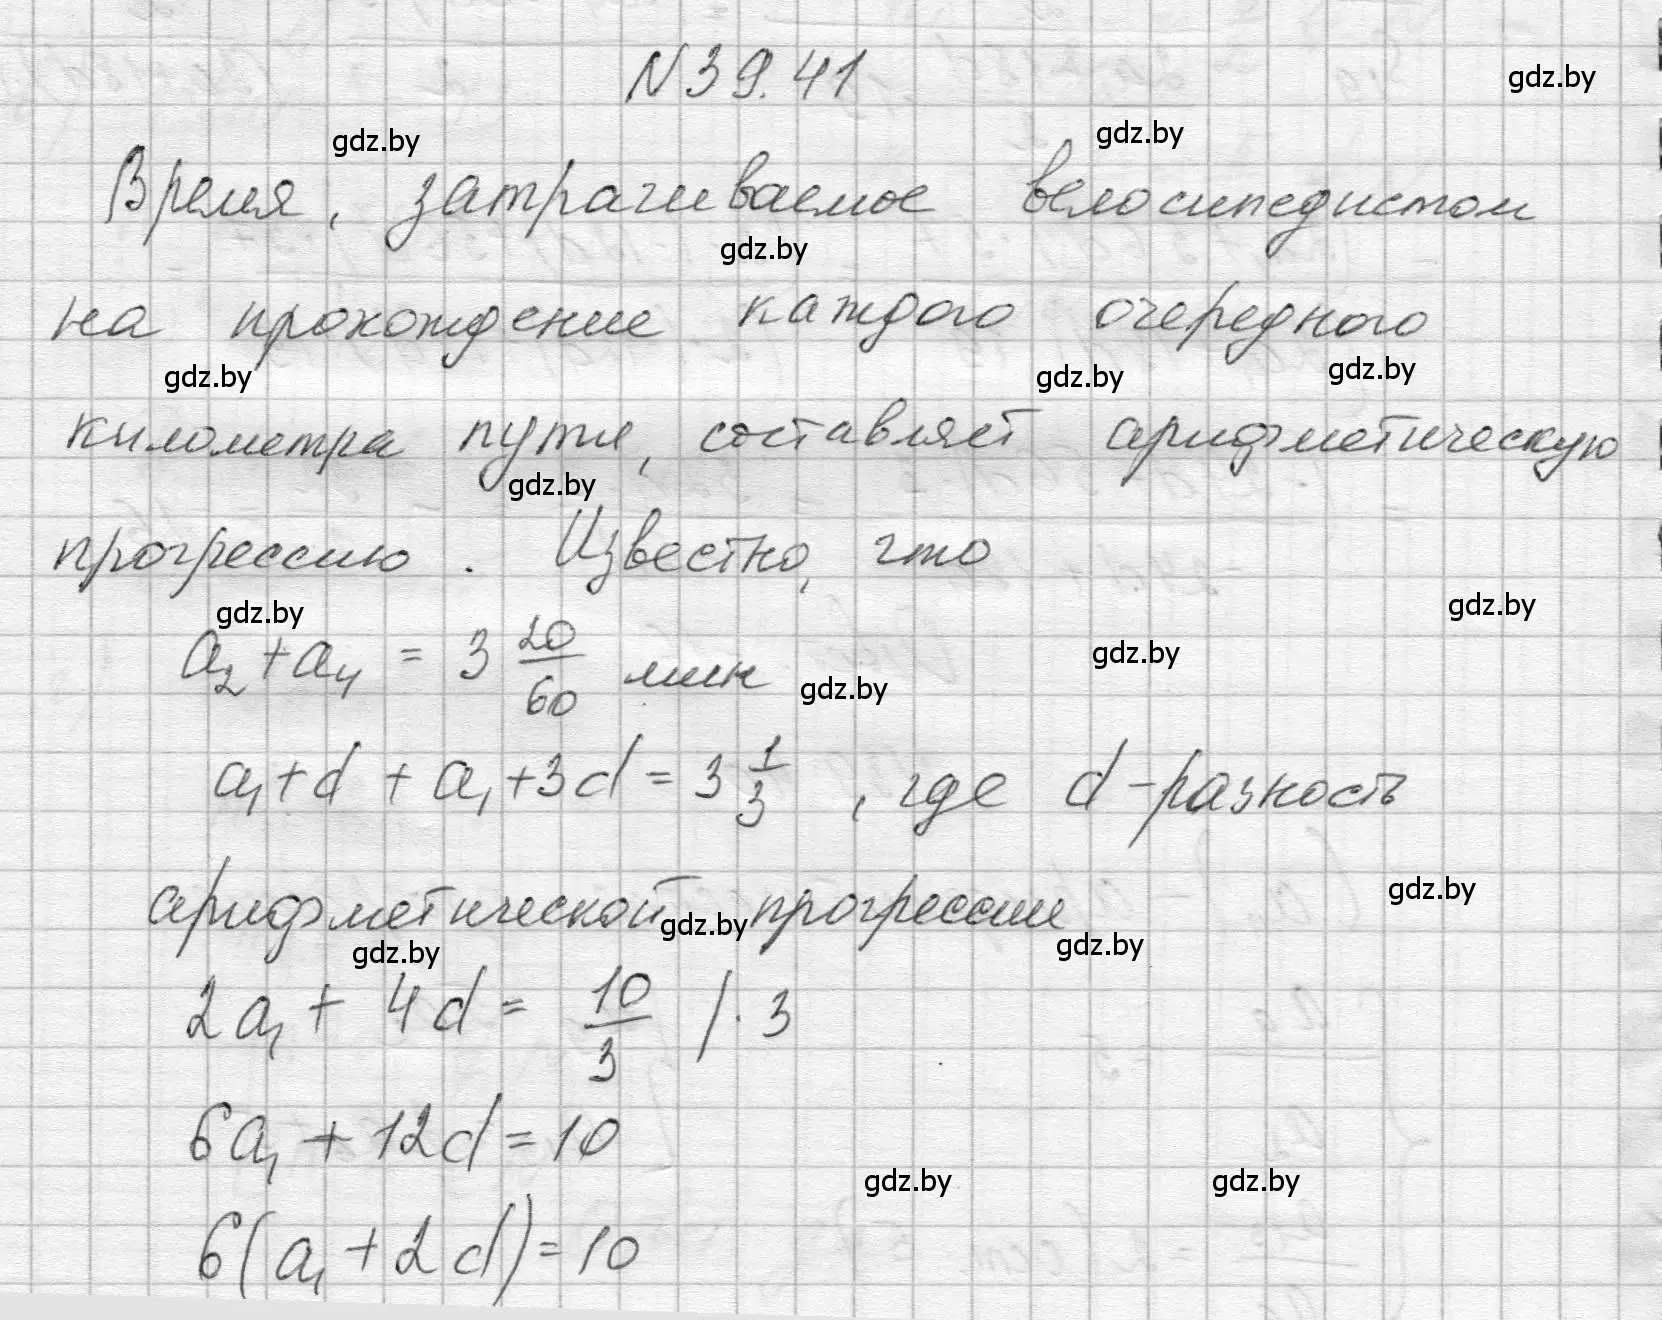 N 39.41
gdz.by
gdz.by
gdz.by
Время, затрачиваемое велосипедистом
gdz.by
на прохождение каждого очередного
gdz.by
gdz.by
gdz.by
километра пути, составляет арифметическую
gdz.by
прогрессию. Известно, что
gdz.by
gdz.by
a₂ + a₄ = 3 20/60 мин
gdz.by
gdz.by
a₁ + d + a₁ + 3d = 3 1/3, где d - разность
gdz.by
арифметической прогрессии
gdz.by
gdz.by
gdz.by
2a₁ + 4d = 10/3 / · 3
6a₁ + 12d = 10
gdz.by
gdz.by
6(a₁ + 2d) = 10